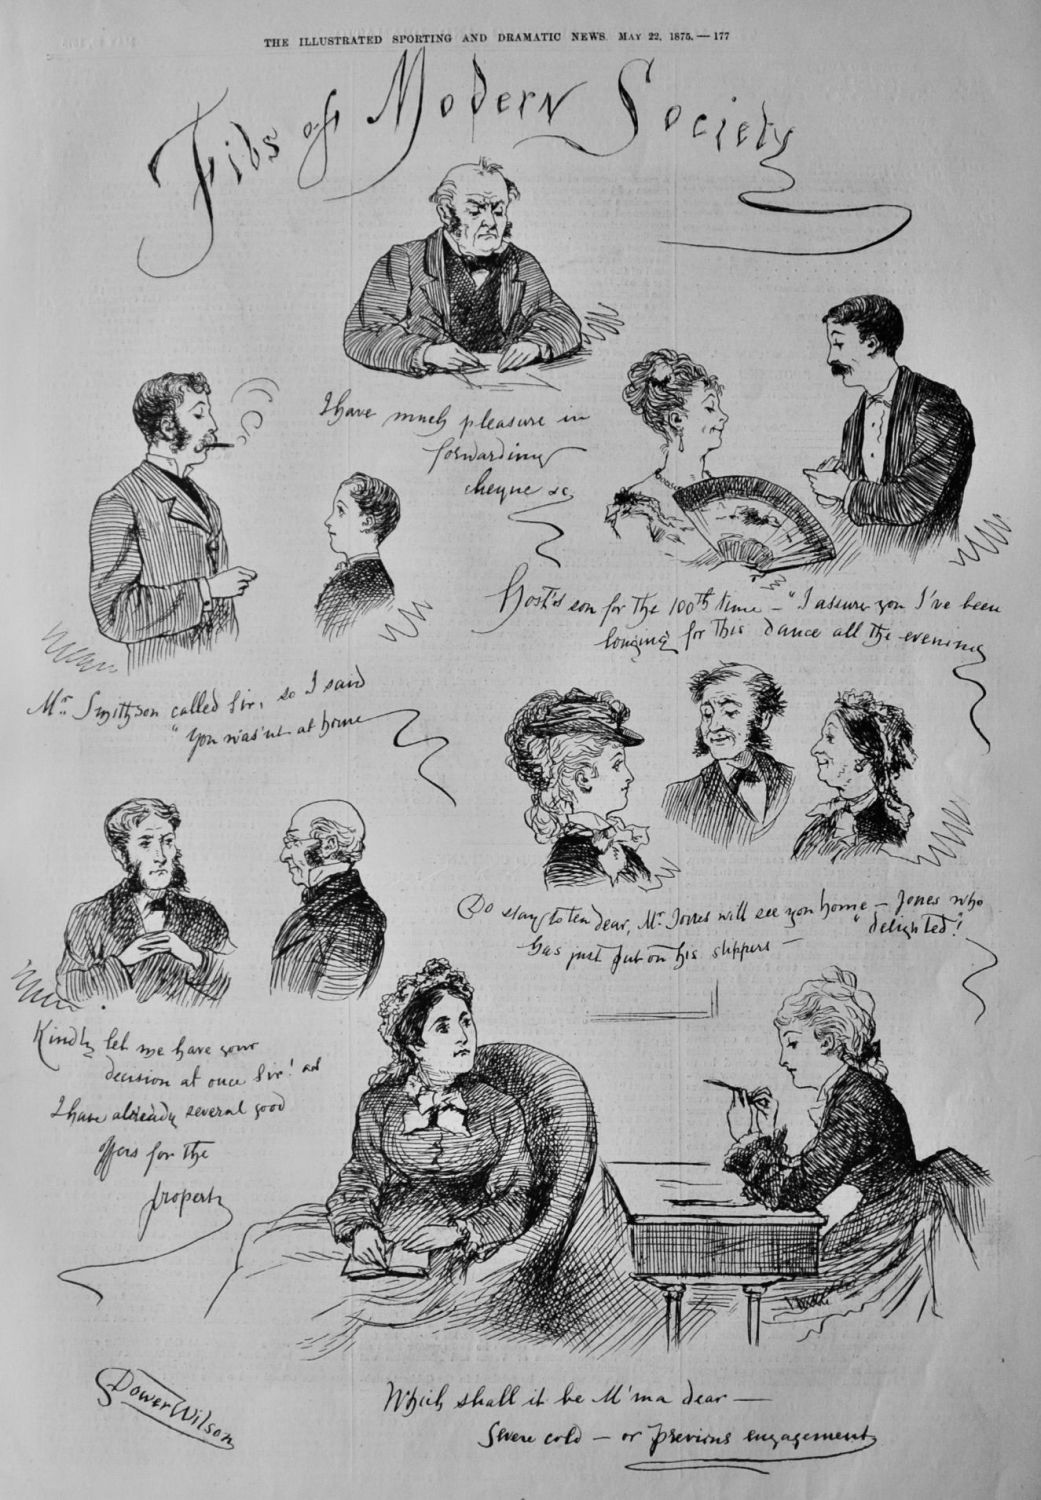 THE ILLUSTRATED SPORTING AND DRAMATIC NEWS. MAY 22, 1875.—177
Fibs of Modern Society
I have much pleasure in
forwarding
cheque &c
Host's son for the 100th time — "I assure you I've been
longing for this dance all the evening
Mr. Smithson called Sir, so I said
"You was'nt at home
Do stay to tea dear, Mr. Jones will see you home — Jones who
has just put on his slippers — "delighted"!
Kindly let me have your
decision at once Sir! as
I have already several good
offers for the
property
Which shall it be M'ma dear —
Severe cold — or previous engagement
Dower Wilson